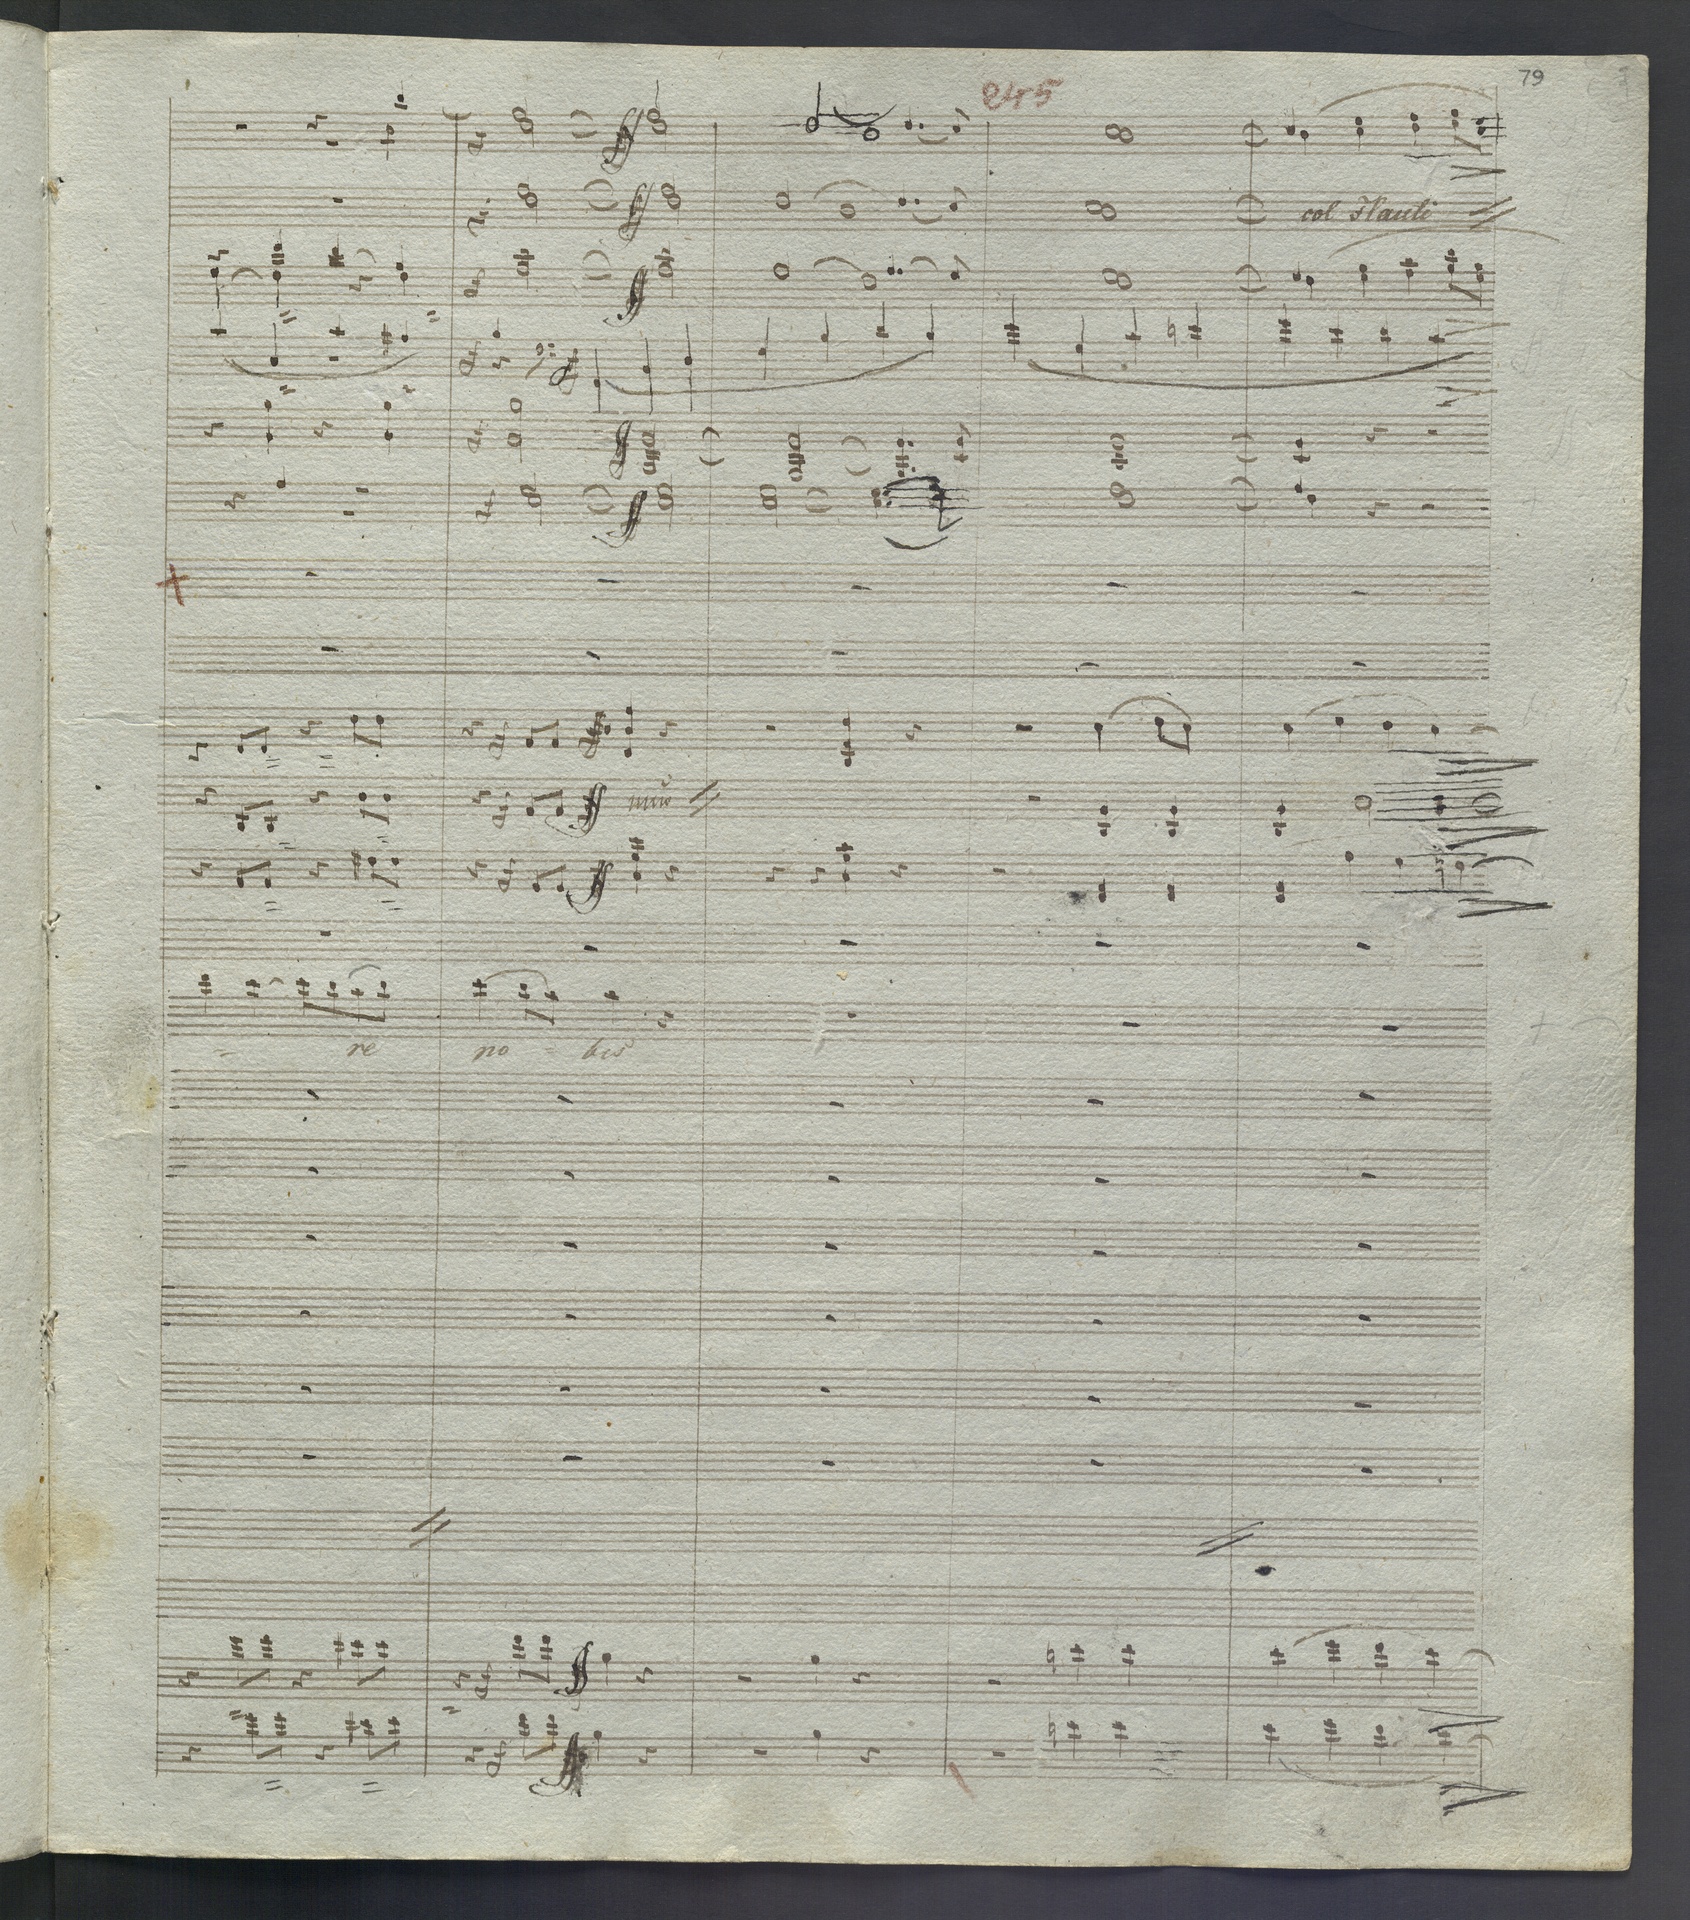 79
245
col Flauti
re no - bis